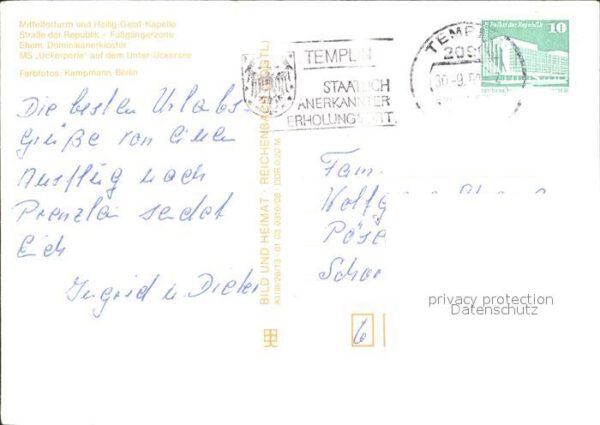 Mitteltorturm und Heilig-Geist-Kapelle
Straße der Republik - Fußgängerzone
Ehem. Dominikanerkloster
MS „Uckerperle" auf dem Unter-Uckersee
Farbfotos: Kampmann, Berlin
Die besten Urlaubs-
grüße von einem
Ausflug nach
Prenzlau sendet
Euch
Ingrid u. Dieter
BILD UND HEIMAT · REICHENBACH (VOGTL)
A1/III/26/13 · 01 03 0316/08 DDR 0,20 M
TEMPLIN
STAATLICH
ANERKANNTER
ERHOLUNGSORT
TEMPLIN
209
30-9
Palast der Republik
10
Fam.
Wolfg
Pöse
Schor
6
privacy protection
Datenschutz